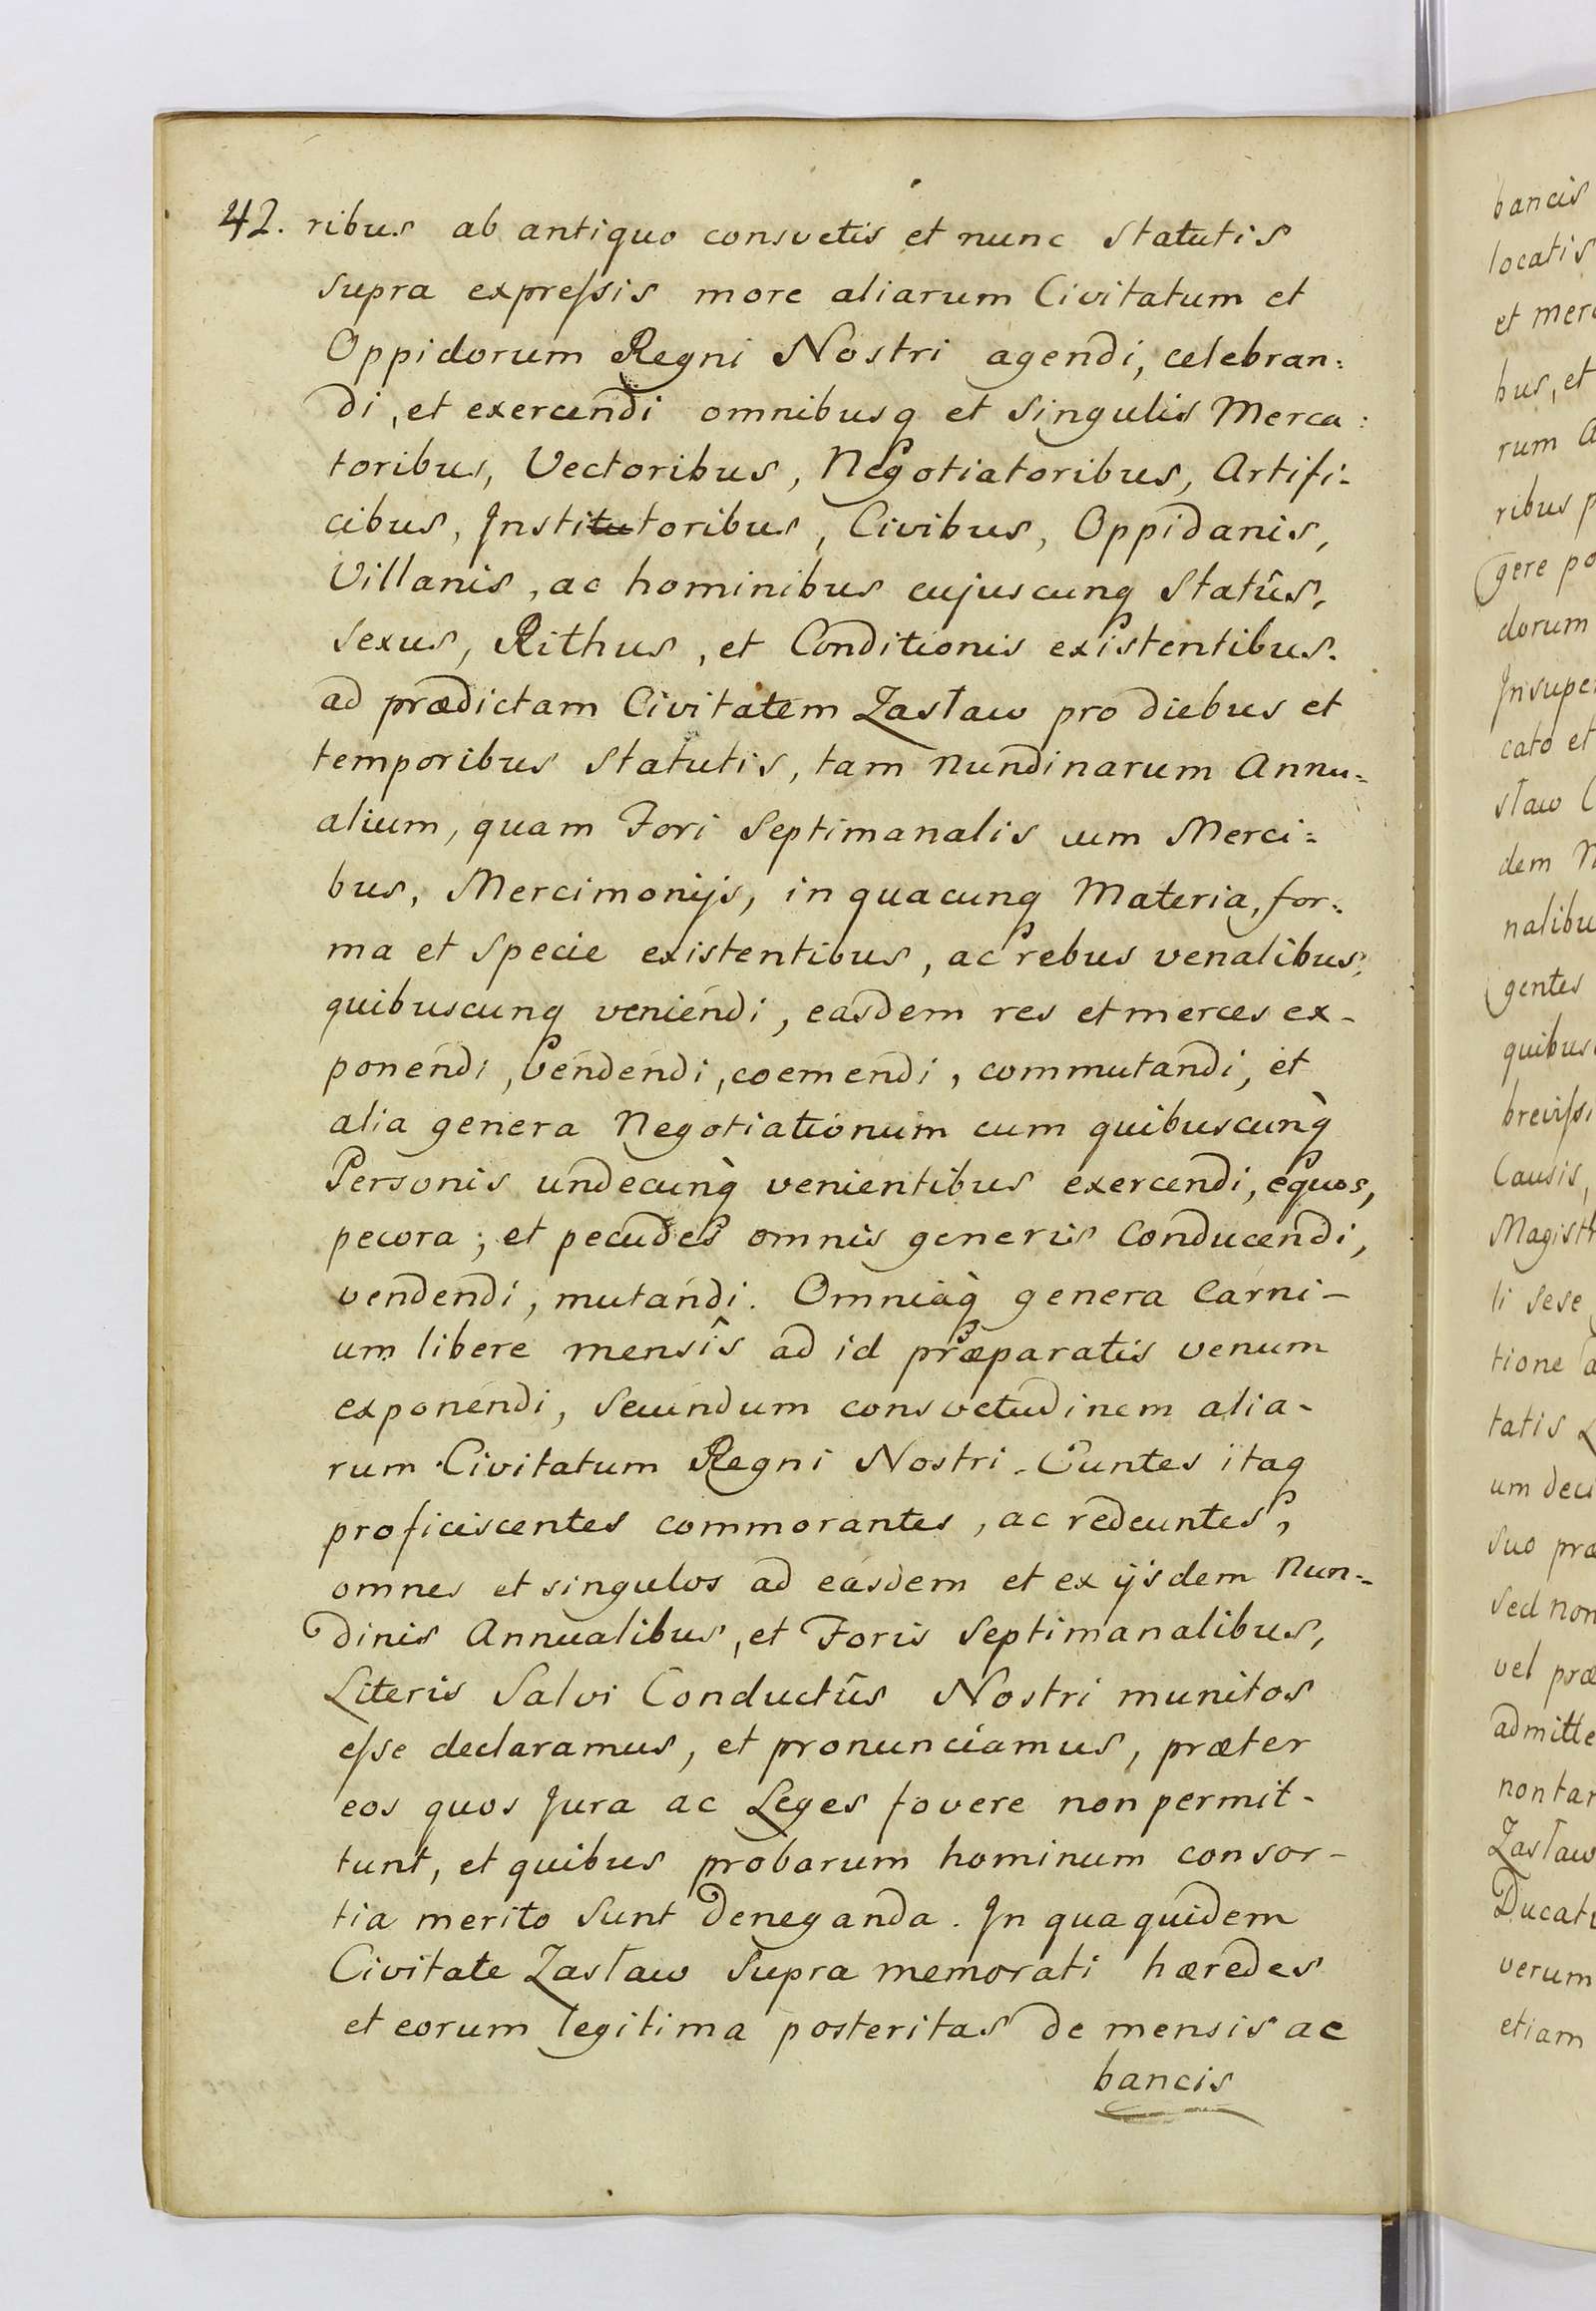 42. ribus ab antiquo consvetis et nunc Statutis
supra expreſsis more aliarum Civitatum et
Oppidorum Regni Nostri agendi, celebran:
di, et exercendi omnibusq et Singulis Merca:
toribus, Vectoribus, Negotiatoribus, Artifi-
cibus, Institutoribus, Civibus, Oppidanis,
Villanis, ac hominibus cujuscunq Statûs,
Sexus, Rithus, et Conditionis existentibus.
ad prædictam Civitatem Zasław pro diebus et
temporibus Statutis, tam Nundinarum Annu=
alium, quam Fori Septimanalis cum Merci=
bus, Mercimonijs, in quacunq Materia, for:
ma et Specie existentibus, ac rebus venalibus,
quibuscunq veniendi, easdem res et merces ex-
ponendi, vendendi, coemendi, commutandi, et
alia genera Negotiationum cum quibuscunq̀
Personis undecunq̀ venientibus exercendi, equos,
pecora, et pecudes omnis generis Conducendi,
vendendi, mutandi. Omniaq̀ genera Carni-
um libere mensîs ad id præparatis venum
exponendi, Secundum consvetudinem alia-
rum Civitatum Regni Nostri. Euntes itaq
proficiscentes commorantes, ac redeuntes,
omnes et singulos ad easdem et ex ijsdem Nun=
dinis Annualibus, et Foris Septimanalibus,
Literis Salvi Conductûs Nostri munitos
eſse declaramus, et pronunciamus, præter
eos quos Jura ac Leges fovere non permit-
tunt, et quibus probarum hominum consor-
tia merito Sunt Deneganda. In qua quidem
Civitate Zasław Supra memorati hæredes
et eorum legitima posteritas de mensis ac
bancis
bancis
locatis
et merc
bus, et
rum A
ribus p
gere po
dorum
Insuper
cato et
sław C
dem N
nalibu
gentes
quibus
breviſsi
Causis,
Magist
li sese
tione
tatis
um dec
Suo præ
Sed non
vel præ
admitte
non tan
Zasław
Ducatu
verum
etiam